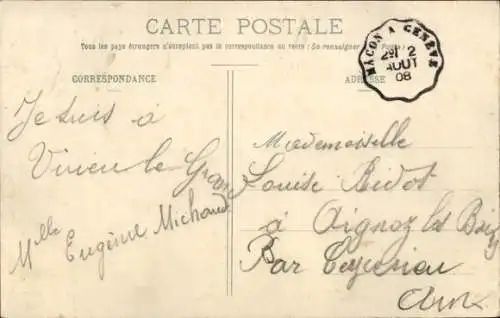 CARTE POSTALE
Tous les pays étrangers n'acceptent pas la correspondance au recto: (Se renseigner à la Poste)
CORRESPONDANCE
ADRESSE
MÂCON A GENÈVE
2
AOUT
08
Je suis à
Virieu le Grand
Mlle Eugénie Michaud
Mademoiselle
Louise Bidot
à
Par